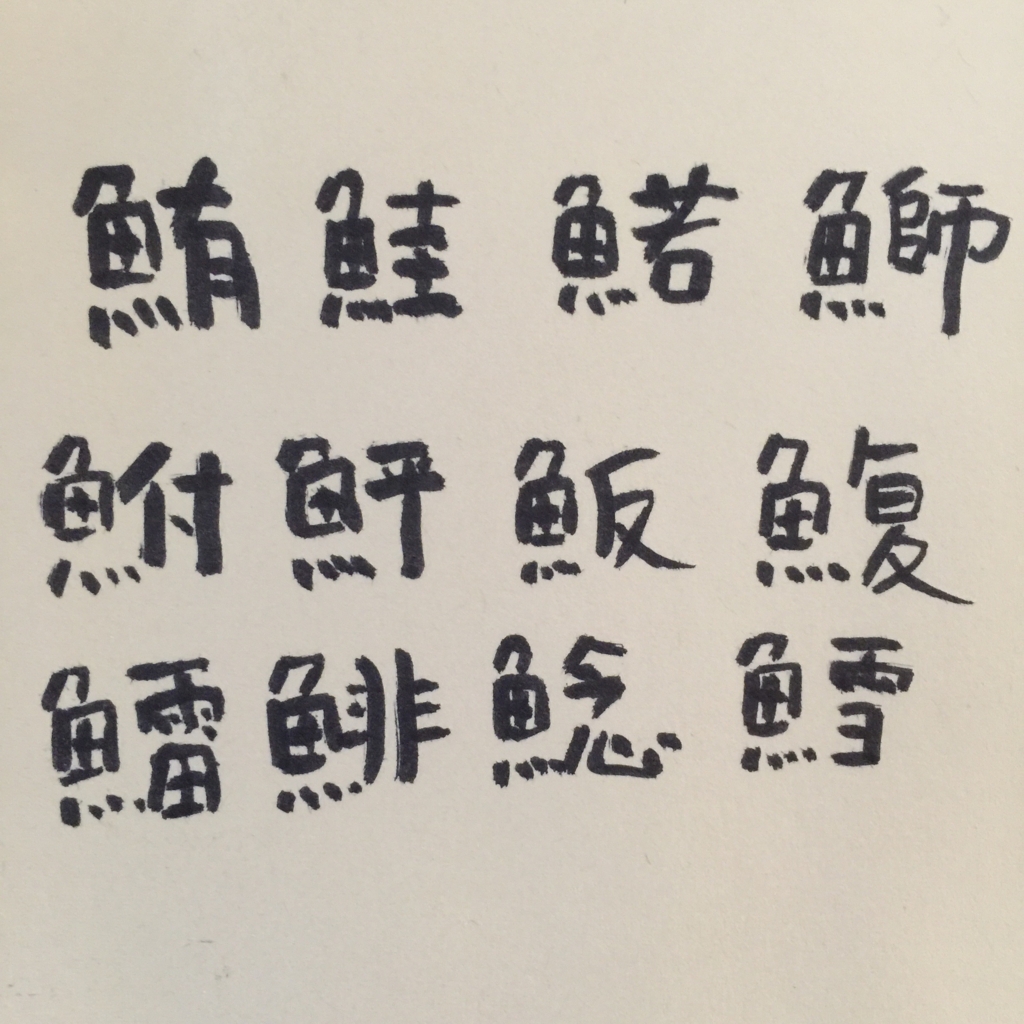 鮪 鮭 鰙 鰤
鮒 鮃 魬 鰒
鱩 鯡 鯰 鱈